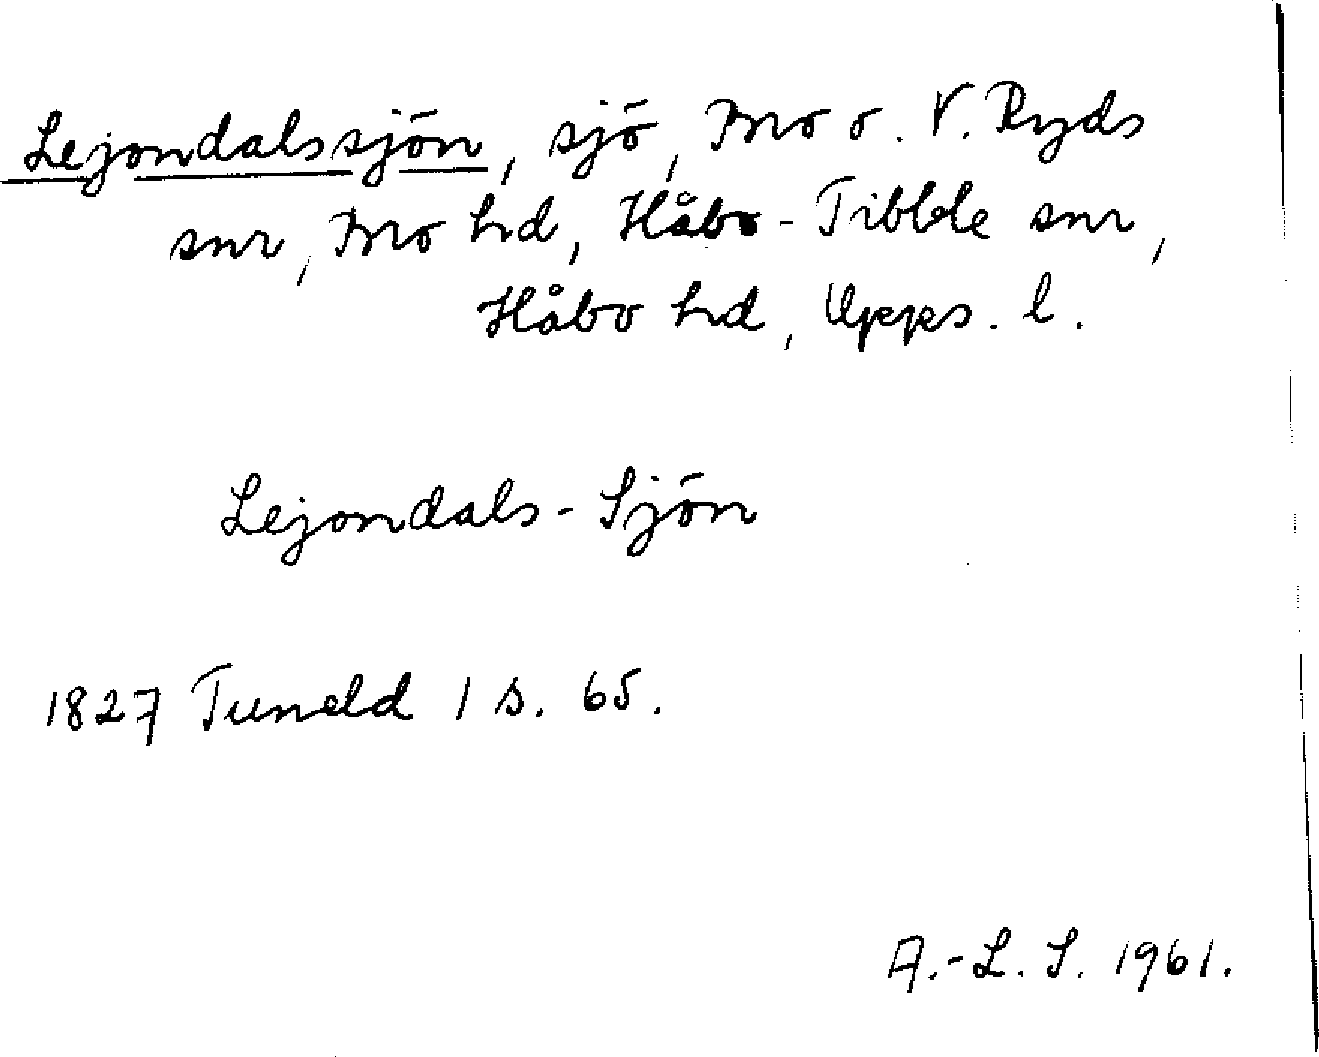 Lejondalssjön, sjö, Bro o. V. Ryds
snr, Bro hd, Håbo-Tibble snr,
Håbo hd, Upps. l.
Lejondals-Sjön
1827 Tuneld 1 s. 65.
A.-L. S. 1961.